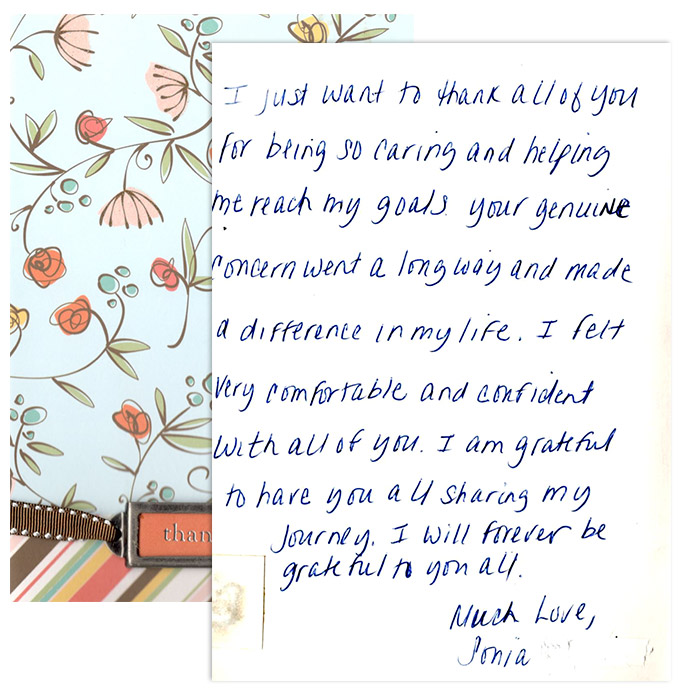 I just want to thank all of you
for being so caring and helping
me reach my goals. your genuine
concern went a long way and made
a difference in my life. I felt
very comfortable and confident
with all of you. I am grateful
to have you all sharing my
journey. I will forever be
grateful to you all.
Much Love,
Sonia
than